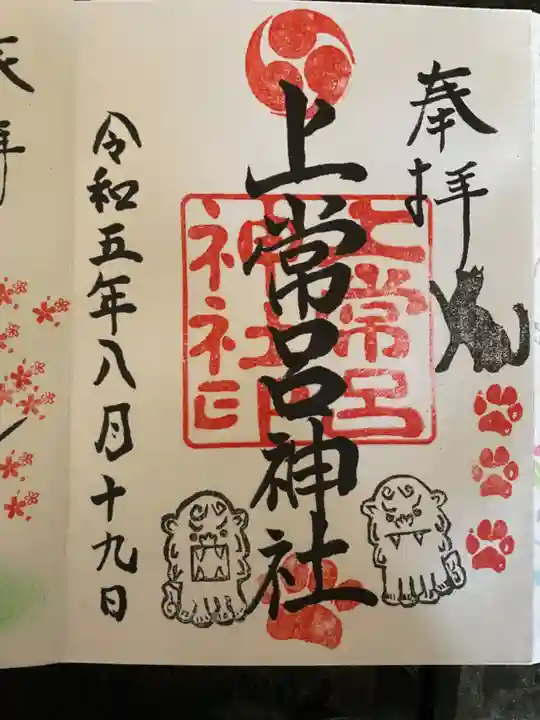 奉拝
上常呂神社
上常呂
神社
神社印
令和五年八月十九日
拝